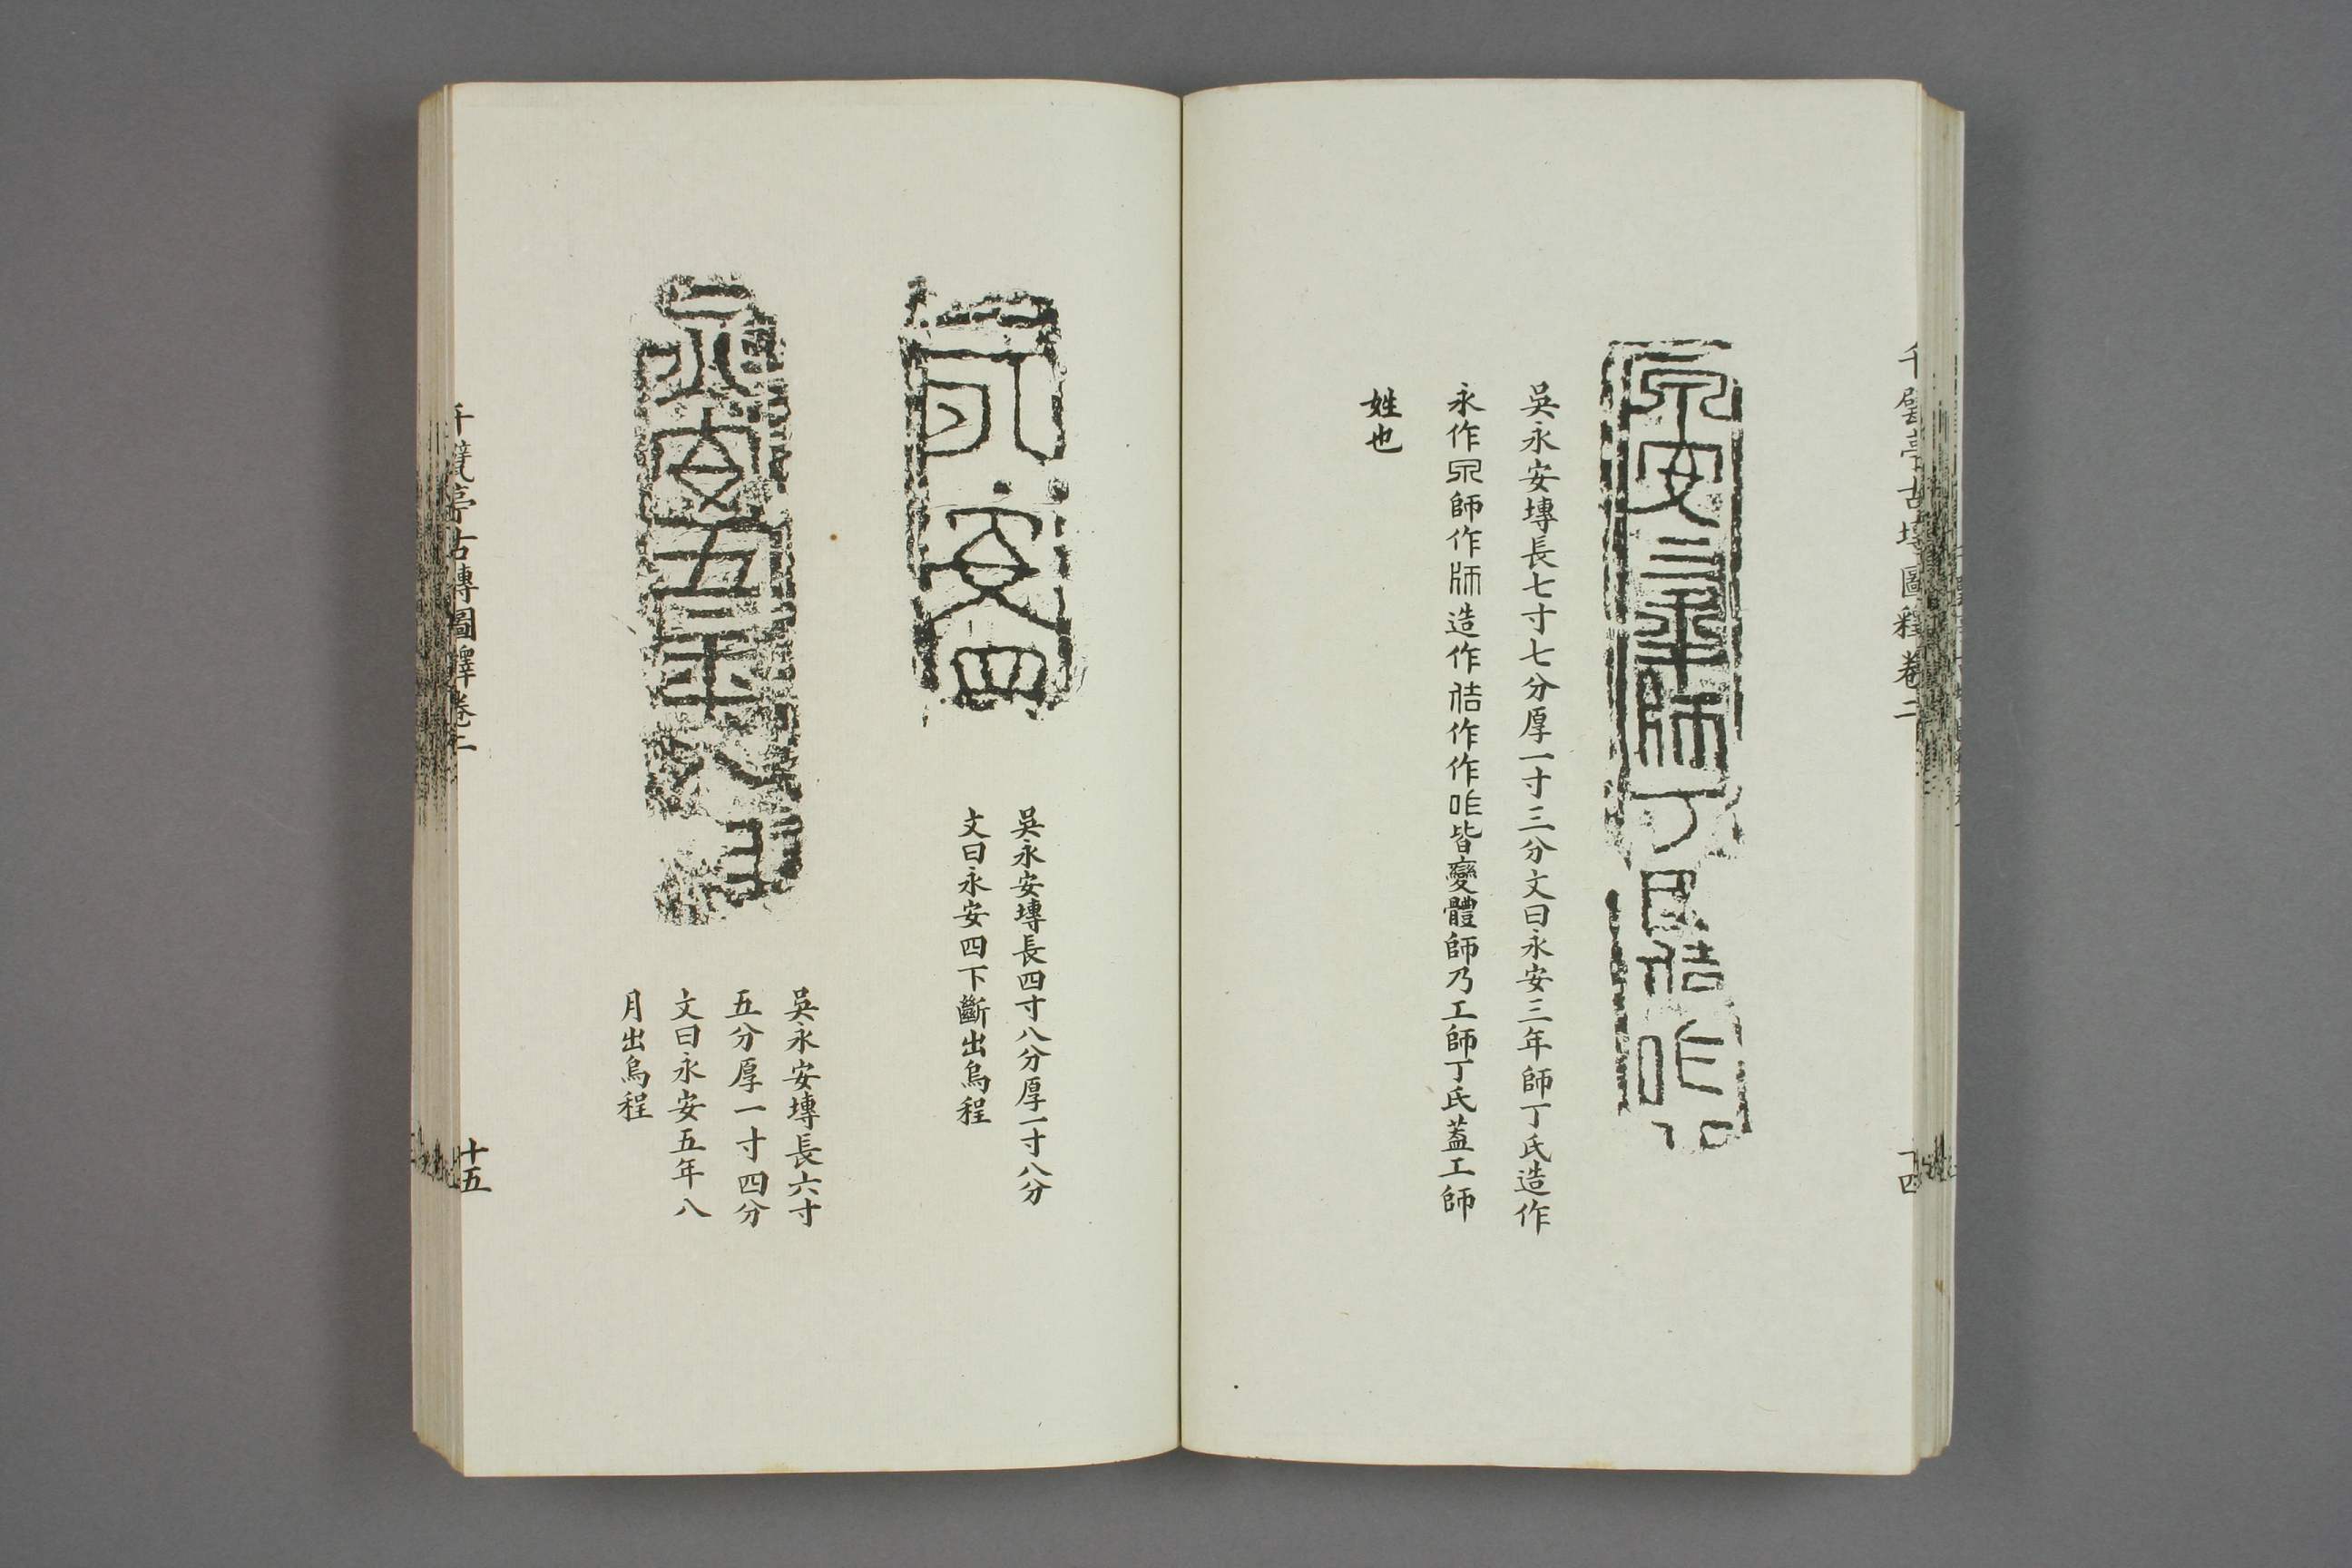 千甓亭古塼圖釋卷二
永安三年師丁氏造作
吳永安塼長七寸七分厚一寸三分文曰永安三年師丁氏造作
永作𣱵師作𠂔造作𠈉作作咋皆變體師乃工師丁氏蓋工師
姓也
永安四
吳永安塼長四寸八分厚一寸八分
文曰永安四下斷出烏程
永安五年八月
吳永安塼長六寸
五分厚一寸四分
文曰永安五年八
月出烏程
千甓亭古塼圖釋卷二
十五